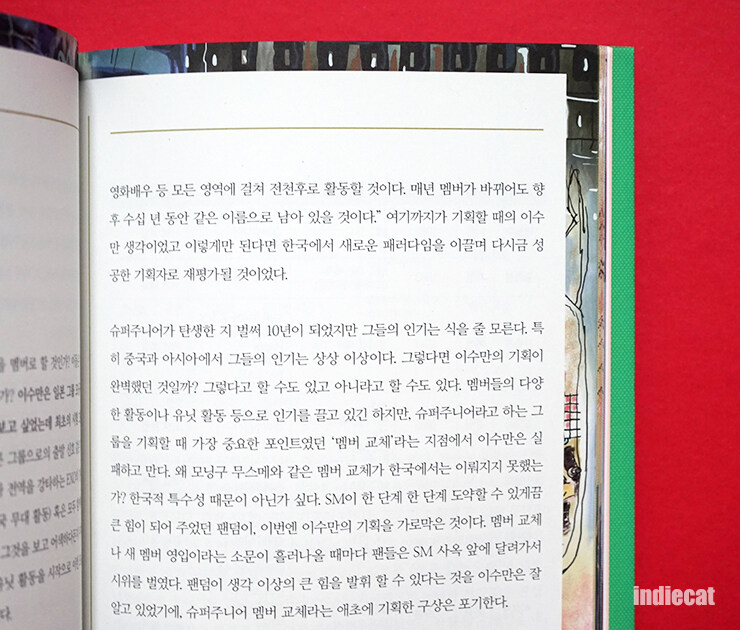 영화배우 등 모든 영역에 걸쳐 전천후로 활동할 것이다. 매년 멤버가 바뀌어도 향
후 수십 년 동안 같은 이름으로 남아 있을 것이다.” 여기까지가 기획할 때의 이수
만 생각이었고 이렇게만 된다면 한국에서 새로운 패러다임을 이끌며 다시금 성
공한 기획자로 재평가될 것이었다.
슈퍼주니어가 탄생한 지 벌써 10년이 되었지만 그들의 인기는 식을 줄 모른다. 특
히 중국과 아시아에서 그들의 인기는 상상 이상이다. 그렇다면 이수만의 기획이
완벽했던 것일까? 그렇다고 할 수도 있고 아니라고 할 수도 있다. 멤버들의 다양
한 활동이나 유닛 활동 등으로 인기를 끌고 있긴 하지만, 슈퍼주니어라고 하는 그
룹을 기획할 때 가장 중요한 포인트였던 ‘멤버 교체’라는 지점에서 이수만은 실
패하고 만다. 왜 모닝구 무스메와 같은 멤버 교체가 한국에서는 이뤄지지 못했는
가? 한국적 특수성 때문이 아닌가 싶다. SM이 한 단계 한 단계 도약할 수 있게끔
큰 힘이 되어 주었던 팬덤이, 이번엔 이수만의 기획을 가로막은 것이다. 멤버 교체
나 새 멤버 영입이라는 소문이 흘러나올 때마다 팬들은 SM 사옥 앞에 달려가서
시위를 벌였다. 팬덤이 생각 이상의 큰 힘을 발휘 할 수 있다는 것을 이수만은 잘
알고 있었기에, 슈퍼주니어 멤버 교체라는 애초에 기획한 구상은 포기한다.
멤버로 할 것인가?
가? 이수만은 일본 그룹
보고 싶었는데 최초의
그룹으로의 출발
전역을 강타하는
무대 활동) 혹은 모두
그것을 보고
유닛 활동을 시작으로
indiecat